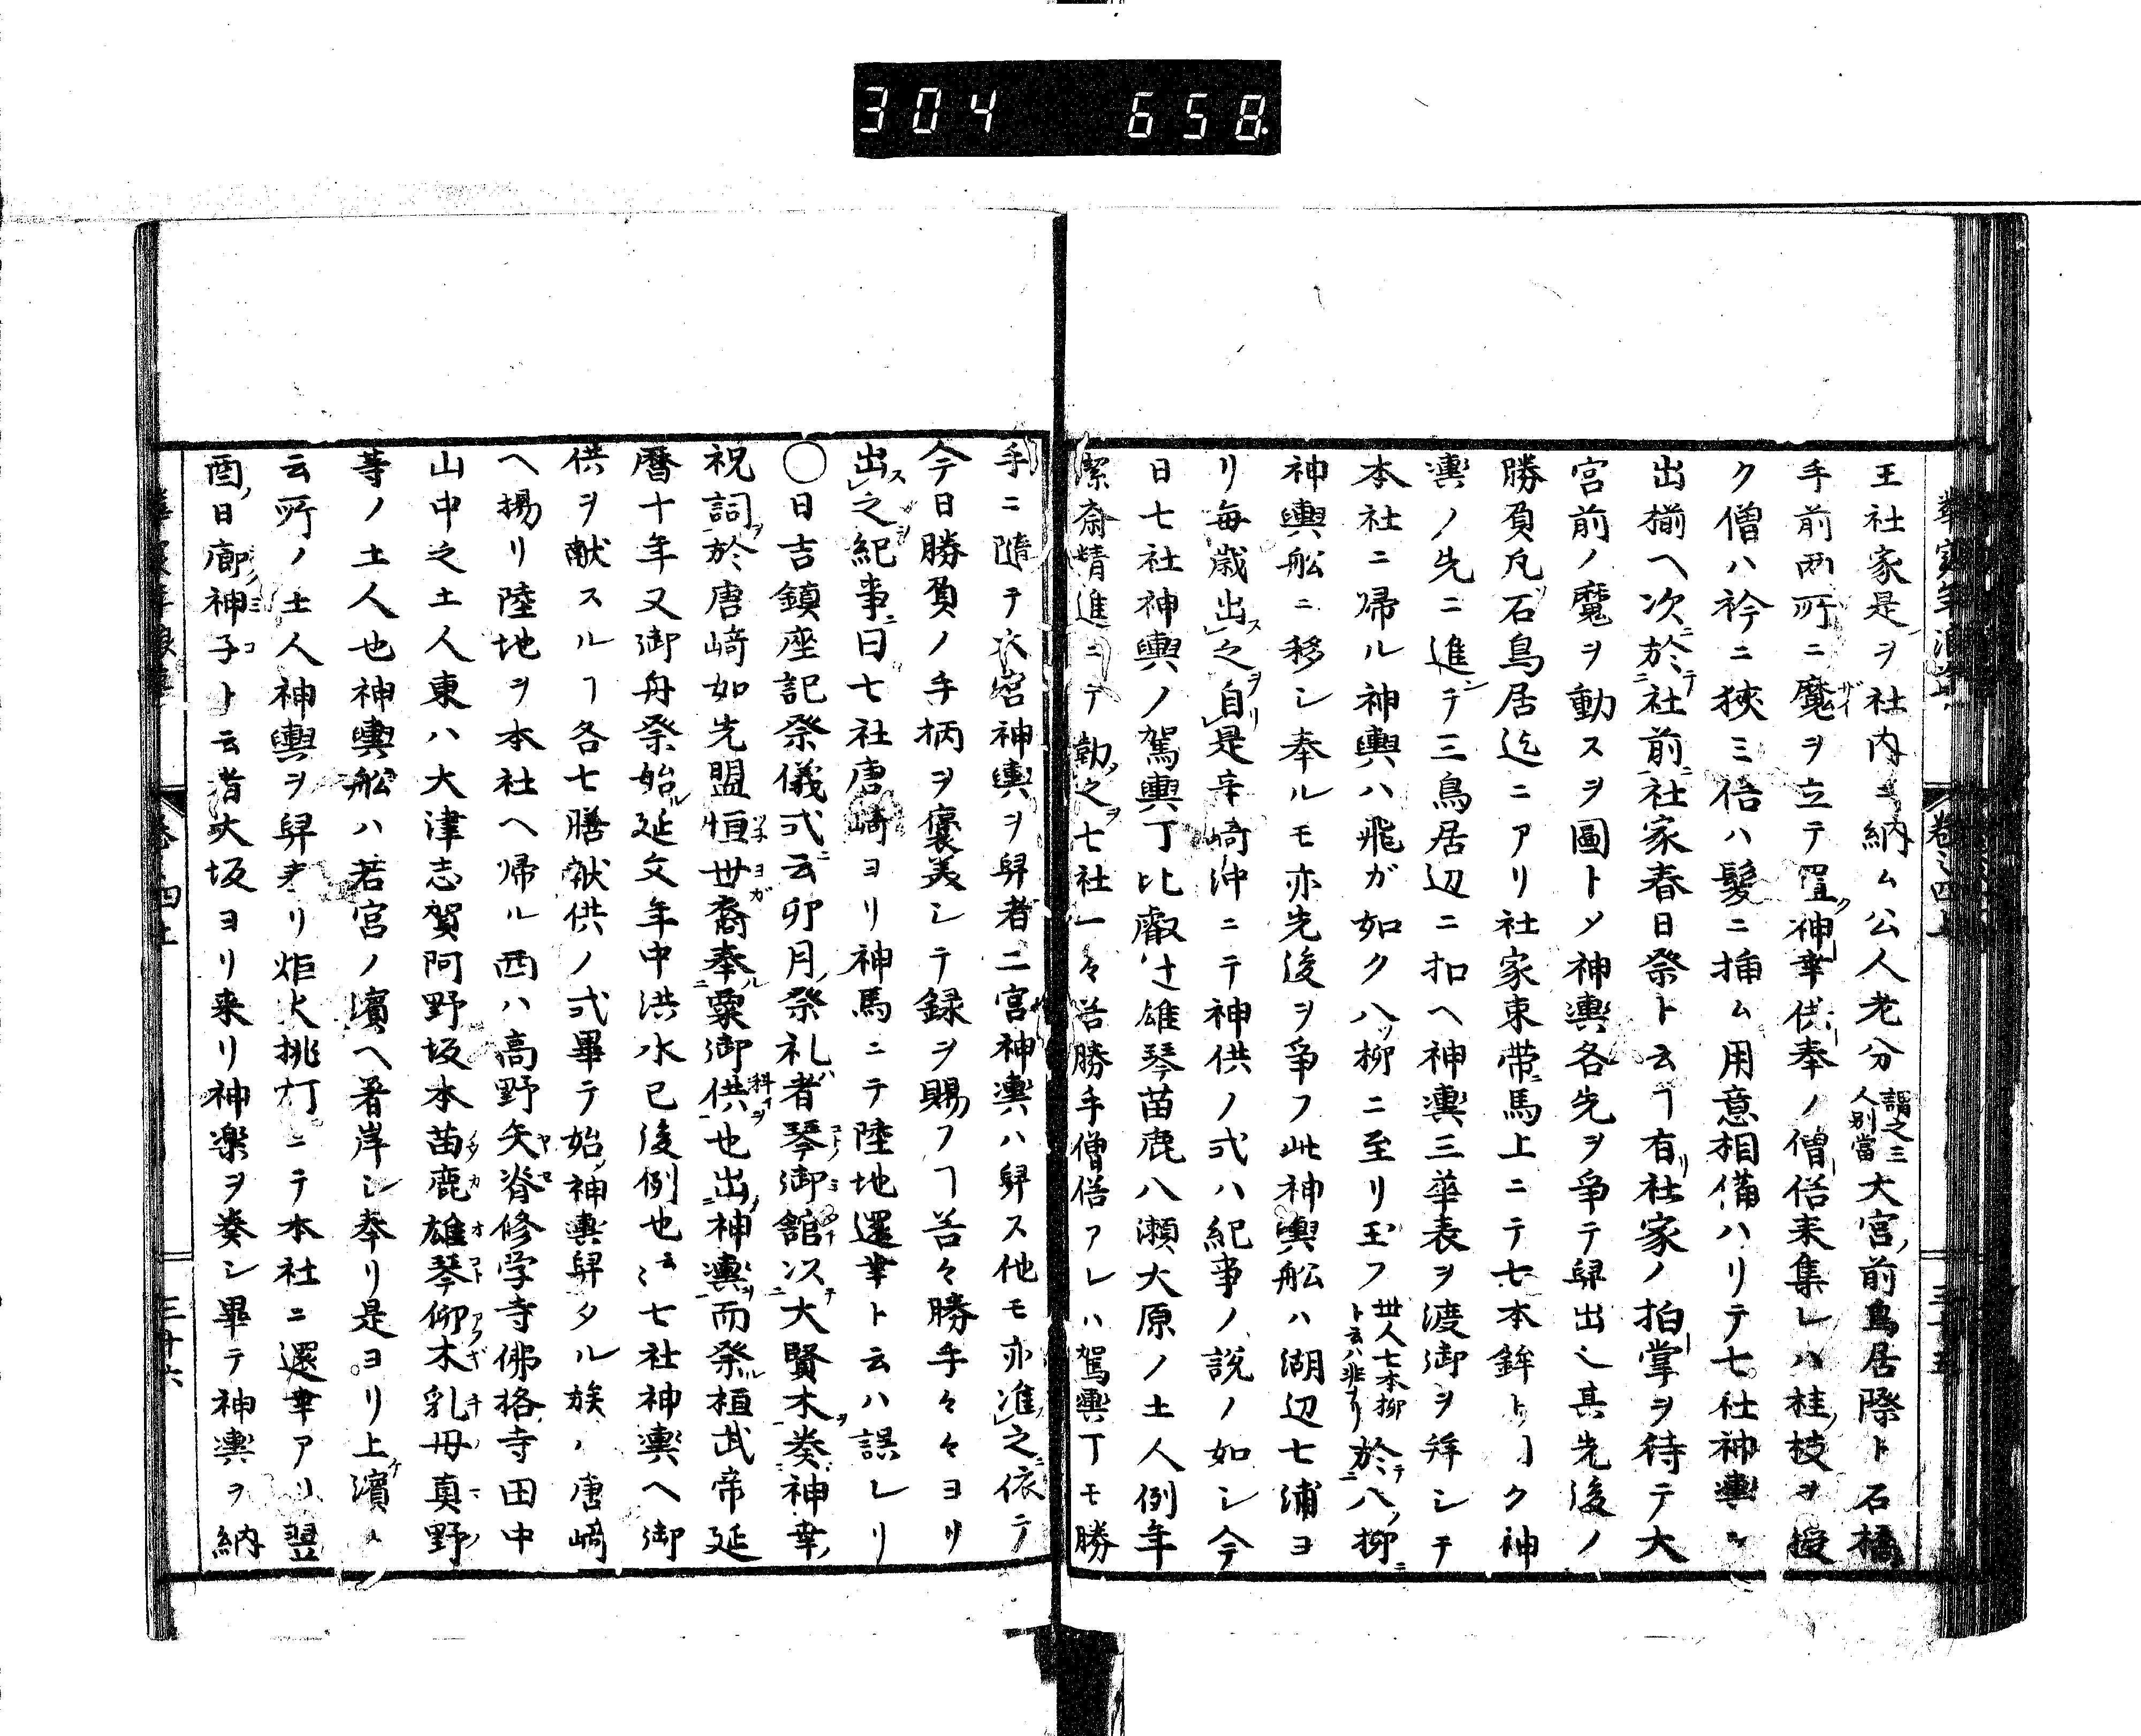 304 658
王社家是ヲ社内ニ納ム公人老分謂之三人別當大宮ノ前鳥居際ト石橋
手前両所ニ麾ヲ立テ置ク神幸供奉ノ僧俗来集レハ桂ノ枝ヲ授
ク僧ハ衿ニ狹ミ俗ハ髮ニ插ム用意相備ハリテ七社神輿ヲ
出揃ヘ次ニ於テ社前ニ社家春日祭ト云ヿ有リ社家ノ拍掌ヲ待テ大
宮前ノ麾ヲ動スヲ圖トメ神輿各先ヲ爭テ舁出之其先後ノ
勝負凡ソ石鳥居迄ニアリ社家束帯馬上ニテ七本鉾トク神
輿ノ先ニ進ンテ三鳥居辺ニ扣ヘ神輿三華表ヲ渡御ヲ拜シテ
本社ニ帰ル神輿ハ飛ガ如ク八ツ柳ニ至リ玉フ丗人七本柳ト云ハ非ナリ於テ八ツ柳ニ
神輿舩ニ移シ奉ルモ亦先後ヲ爭フ此神輿舩ハ湖辺七浦ヨ
リ毎歳出ス之ヲ自リ是辛崎沖ニテ神供ノ式ハ紀事ノ説ノ如シ今
日七社神輿ノ駕輿丁比叡辻雄琴苗鹿八瀬大原ノ土人例年
潔斎精進ニテ勤ム之ヲ七社一々皆勝手僧俗アレハ駕輿丁モ勝
手ニ隨テ大宮神輿ヲ舁者二宮神輿ハ舁ス他モ亦准之ニ依テ
今日勝負ノ手柄ヲ褒美シテ録ヲ賜フヿ皆々勝手々々ヨリ
出ス之ヲ紀事ニ曰七社唐崎ヨリ神馬ニテ陸地還幸ト云ハ誤レリ
〇日吉鎮座記祭儀式ニ云卯月ノ祭礼ハ者琴御舘以テ大賢木ヲ奏神幸ノ
祝詞ヲ於唐崎如先盟恒世裔奉ル粟御供料イヲ也出神輿ヲ而祭ル桓武帝延
暦十年又御舟祭始ル延文年中洪水已後例也云々七社神輿ヘ御
供ヲ献スルヿ各七膳献供ノ式畢テ始ノ神輿舁タル族ハ唐崎
ヘ揚リ陸地ヲ本社ヘ帰ル西ハ高野矢脊修学寺佛格寺田中
山中之土人東ハ大津志賀阿野坂本苗鹿雄琴仰木乳母真野
等ノ土人也神輿舩ハ若宮ノ濱ヘ著岸シ奉リ是ヨリ上濱ト
云所ノ土人神輿ヲ舁来リ炬火挑灯ニテ本社ニ還幸アリ翌
酉ノ日廊ノ神子ト云者大坂ヨリ来リ神楽ヲ奏シ畢テ神輿ヲ納
三十六